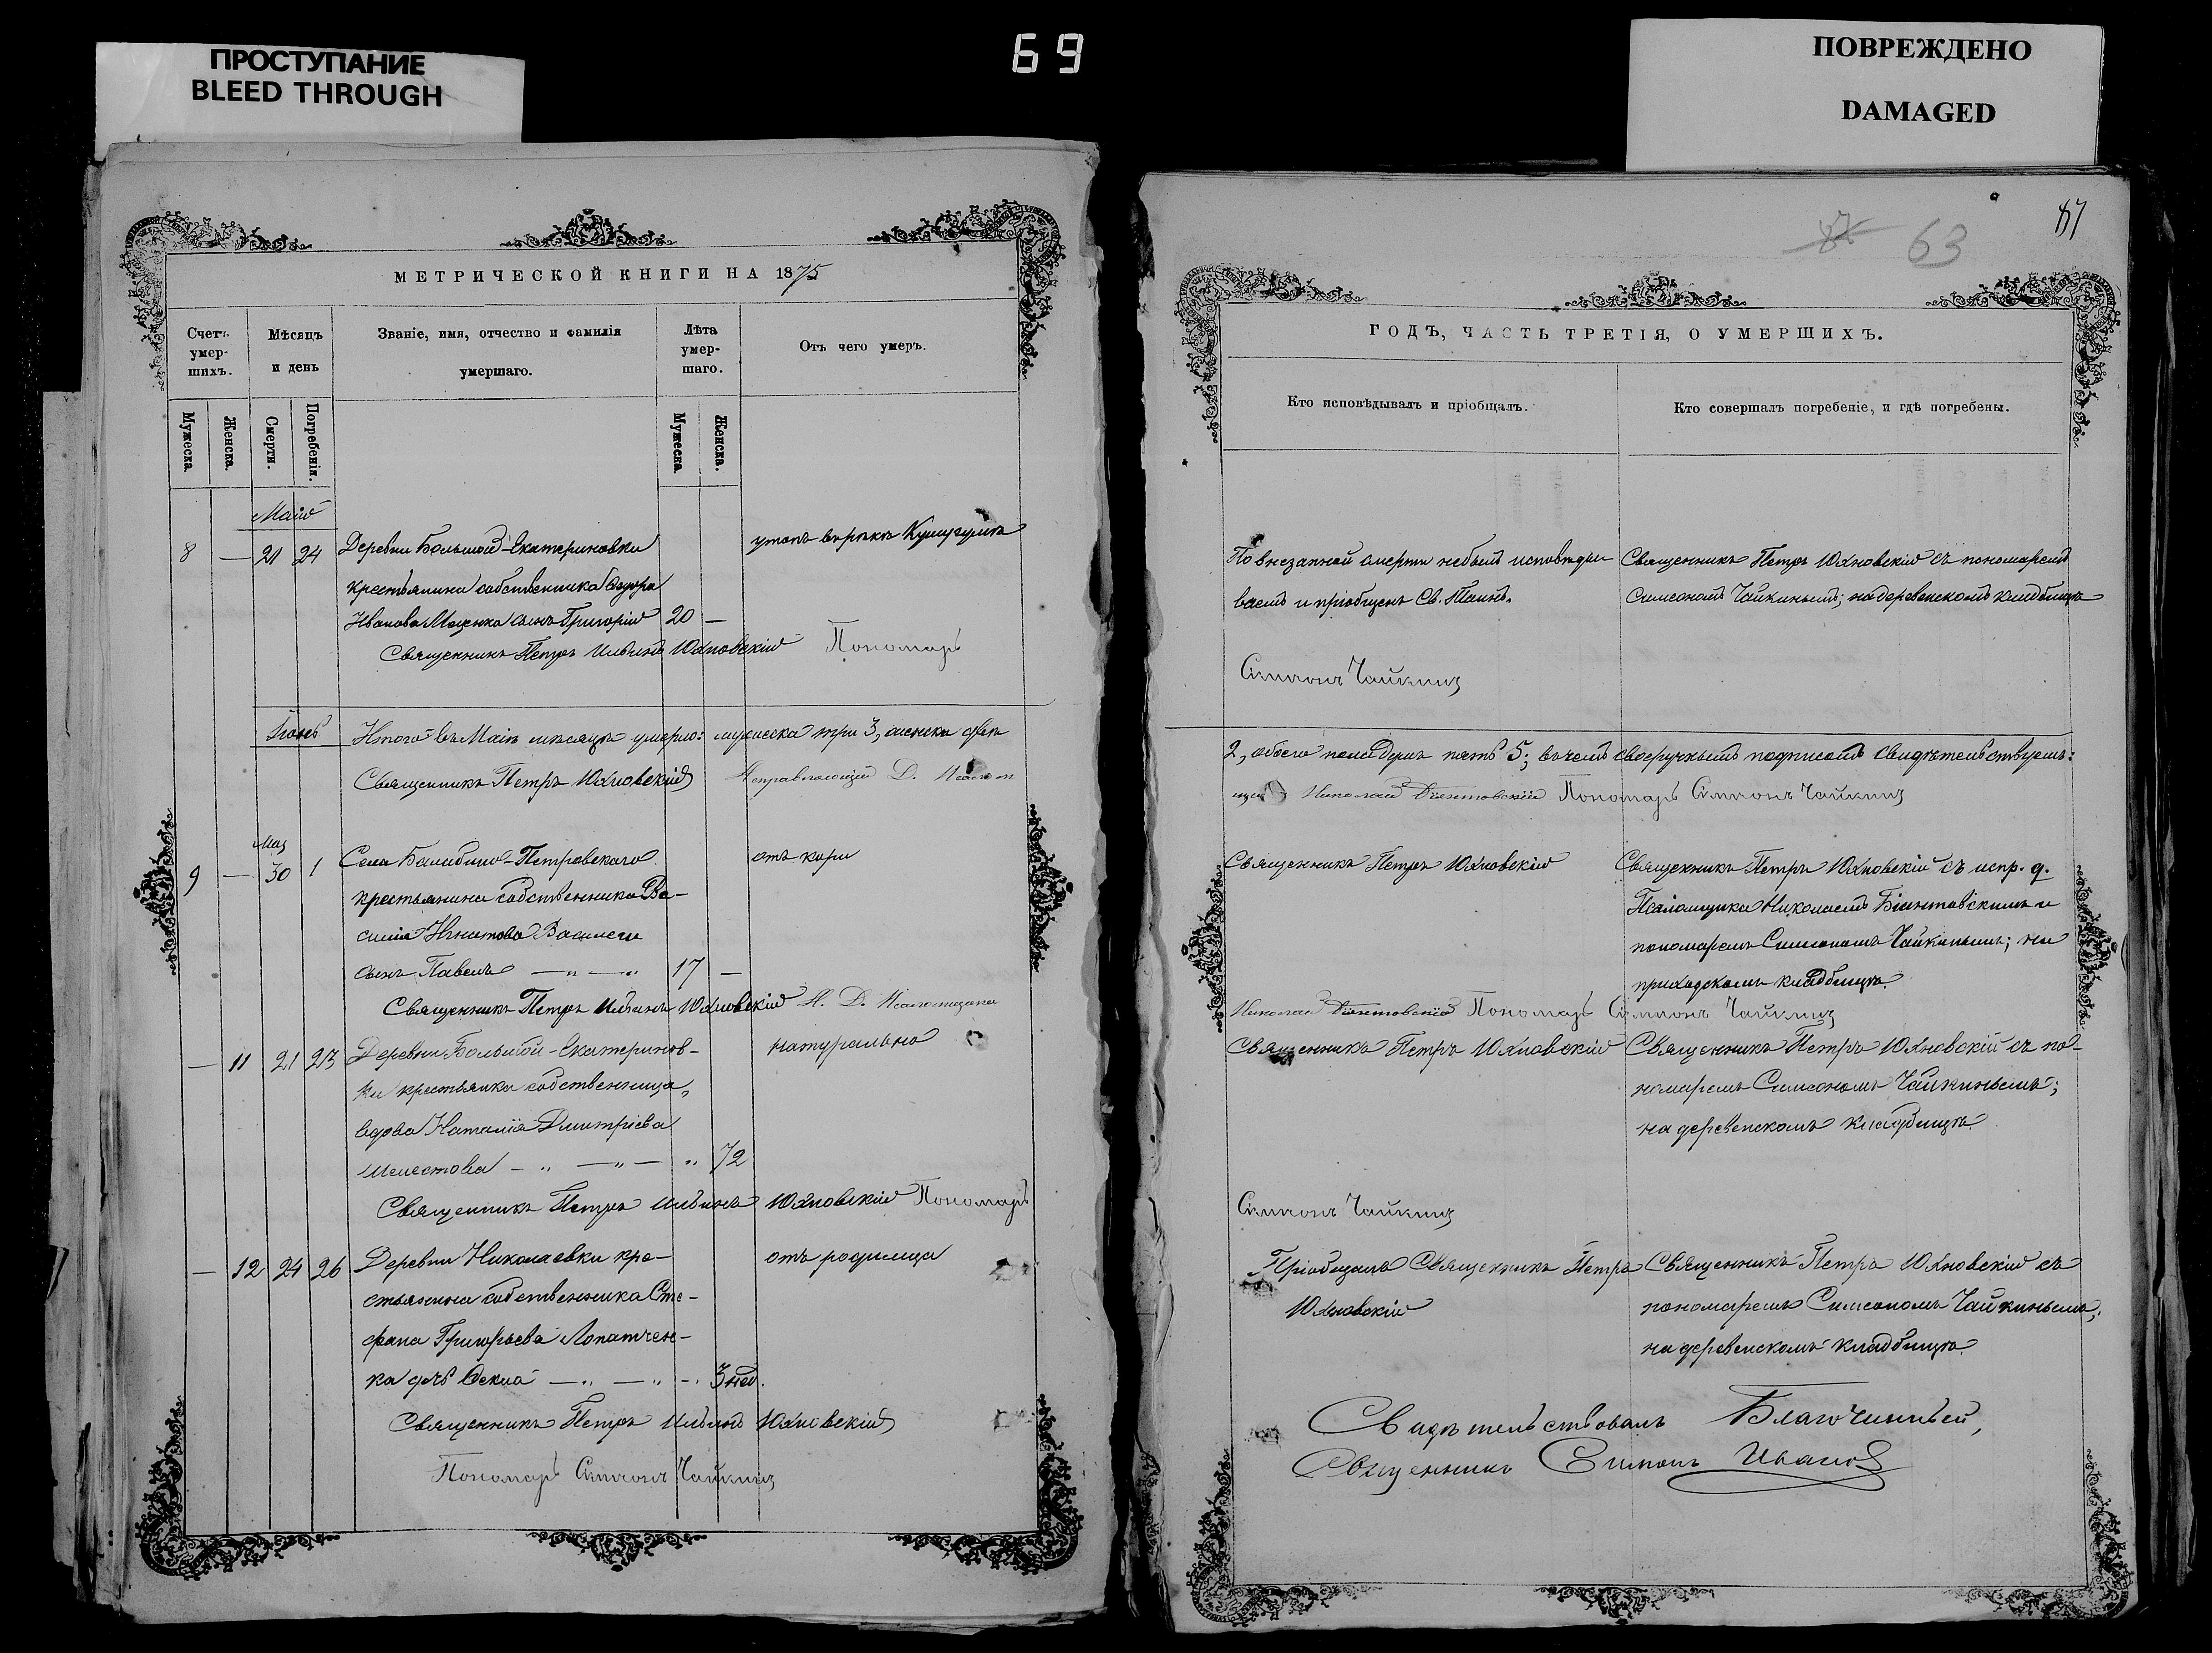 ПРОСТУПАНИЕ
BLEED THROUGH
69
ПОВРЕЖДЕНО
DAMAGED
МЕТРИЧЕСКОЙ КНИГИ НА 1875
Счетъ умер-шихъ.
Мѣсяцъ и день
Званіе, имя, отчество и фамилія умершаго.
Лѣта умер-шаго.
Отъ чего умеръ.
Мужеска.
Женска.
Смерти.
Погребенія.
Мужеска.
Женска.
Май
8 — 21 24 Деревни Большой-Екатериновки
крестьянина собственника Ѳедора
Иванова Мащенка сынъ Григорій 20 —
утопъ въ рѣкѣ
Священникъ Петръ Ильинъ Юхновскій Пономарь
Іюнь
Итого въ Маіѣ мѣсяцѣ умерло: мужеска три 3, женска двѣ
Священникъ Петръ Юхновскій Исправляющій Д. Псалом
Мая
9 — 30 1 Села Балабино-Петровскаго
крестьянина собственника Ва-
силія Игнатова
сынъ Павелъ — „ — „ 17 —
отъ кори
Священникъ Петръ Ильинъ Юхновскій И. Д. Псаломщика
— 11 21 23 Деревни Большой-Екатеринов-
ки крестьянка собственница,
вдова Наталія Дмитріева
Шелестова — „ — „ — „ 72
натурально
Священникъ Петръ Ильинъ Юхновскій Пономарь
— 12 24 26 Деревни Николаевки кре-
стьянина собственника Сте-
фана Григорьева Лопатчен-
ка дочь Ѳекла — „ — „ — 3 нед.
отъ родимца
Священникъ Петръ Ильинъ Юхновскій
Пономарь Симеонъ Чайкинъ
87 63
87
ГОДЪ, ЧАСТЬ ТРЕТІЯ, О УМЕРШИХЪ.
Кто исповѣдывалъ и пріобщалъ.
Кто совершалъ погребеніе, и гдѣ погребены.
По внезапной смерти небылъ исповѣды-
ваемъ и пріобщенъ Св. Таинъ.
Священникъ Петръ Юхновскій съ пономаремъ
Симеономъ Чайкинымъ; на деревенскомъ кладбищѣ
Симеонъ Чайкинъ
2, обоего пола душъ пять 5; въ чемъ своеручнымъ подписомъ свидѣтельствуемъ:
Николай Біянтовскій Пономарь Симеонъ Чайкинъ
Священникъ Петръ Юхновскій
Священникъ Петръ Юхновскій съ испр. д.
Псаломщика Николаемъ Біянтовскимъ и
пономаремъ Симеономъ Чайкинымъ; на
приходскомъ кладбищѣ.
Николай Біянтовскій Пономарь Симеонъ Чайкинъ
Священникъ Петръ Юхновскій
Священникъ Петръ Юхновскій съ по-
номаремъ Симеономъ Чайкинымъ;
на деревенскомъ кладбищѣ.
Симеонъ Чайкинъ
Пріобщалъ Священникъ Петръ
Юхновскій
Священникъ Петръ Юхновскій съ
пономаремъ Симеономъ Чайкинымъ;
на деревенскомъ кладбищѣ.
Свидѣтельствовалъ Благочинный,
Священникъ Симонъ Ивановъ